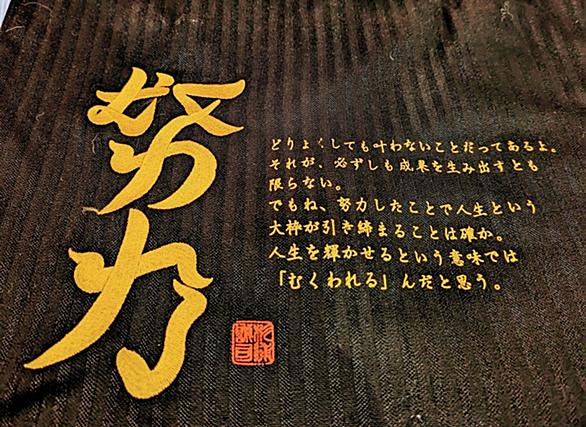 努力
どりょくしても叶わないことだってあるよ。
それが、必ずしも成果を生み出すとも
限らない。
でもね、努力したことで人生という
大枠が引き締まることは確か。
人生を輝かせるという意味では
「むくわれる」んだと思う。